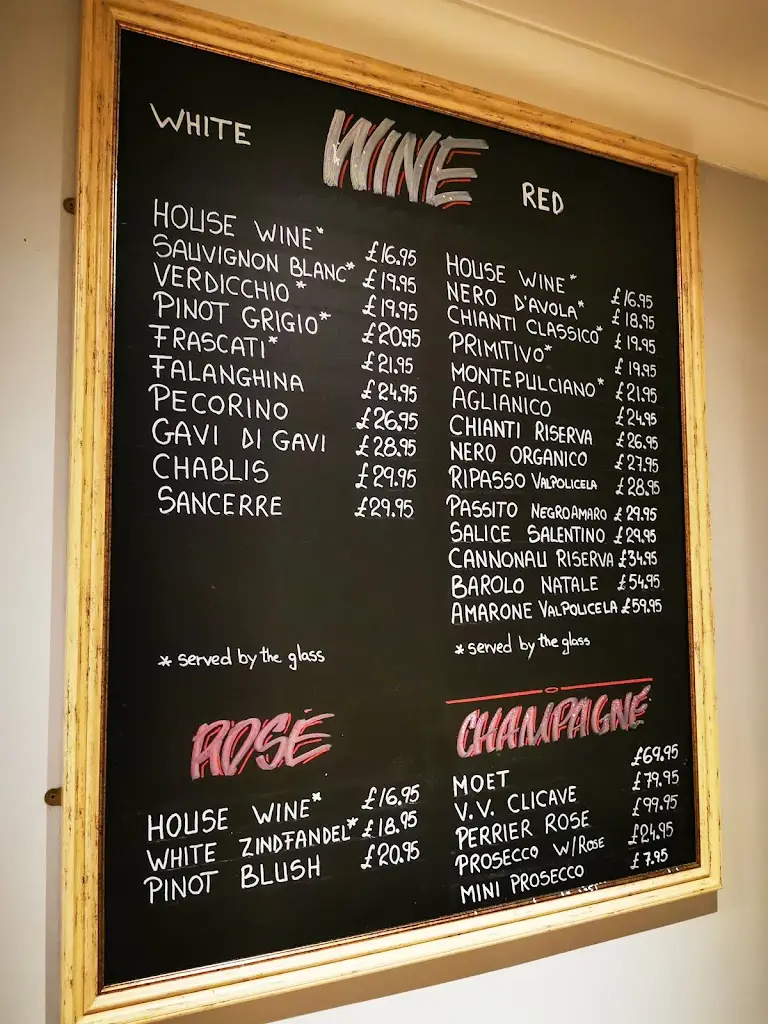 WINE
WHITE
HOUSE WINE* £16.95
SAUVIGNON BLANC* £19.95
VERDICCHIO* £19.95
PINOT GRIGIO* £20.95
FRASCATI* £21.95
FALANGHINA £24.95
PECORINO £26.95
GAVI DI GAVI £28.95
CHABLIS £29.95
SANCERRE £29.95
* served by the glass
RED
HOUSE WINE* £16.95
NERO D'AVOLA* £18.95
CHIANTI CLASSICO* £19.95
PRIMITIVO* £19.95
MONTEPULCIANO* £21.95
AGLIANICO £24.95
CHIANTI RISERVA £26.95
NERO ORGANICO £27.95
RIPASSO VALPOLICELA £28.95
PASSITO NEGROAMARO £29.95
SALICE SALENTINO £29.95
CANNONAU RISERVA £34.95
BAROLO NATALE £54.95
AMARONE VALPOLICELA £59.95
* served by the glass
ROSÉ
HOUSE WINE* £16.95
WHITE ZINDFANDEL* £18.95
PINOT BLUSH £20.95
CHAMPAGNE
MOET £69.95
V.V. CLICAVE £79.95
PERRIER ROSE £99.95
PROSECCO W/ROSE £24.95
MINI PROSECCO £7.95